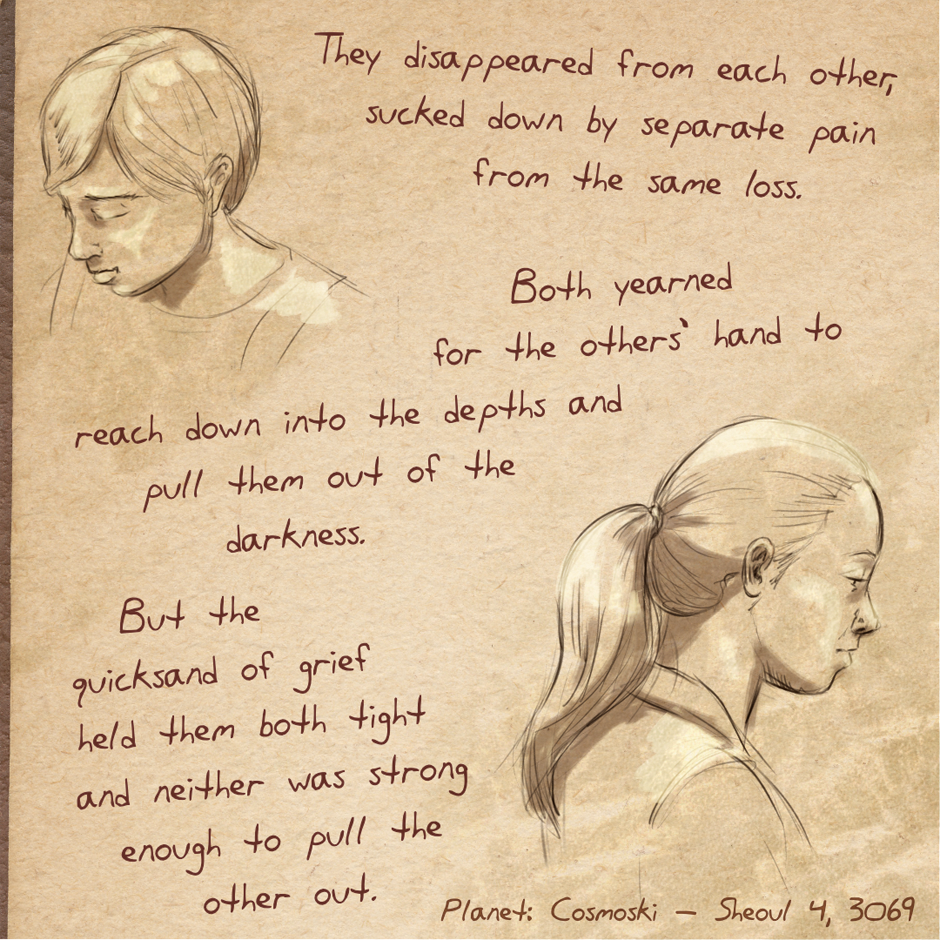 They disappeared from each other,
sucked down by separate pain
from the same loss.
Both yearned
for the others' hand to
reach down into the depths and
pull them out of the
darkness.
But the
quicksand of grief
held them both tight
and neither was strong
enough to pull the
other out.
Planet: Cosmoski – Sheoul 4, 3069